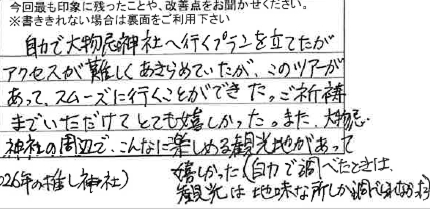 今回最も印象に残ったことや、改善点をお聞かせください。
※書ききれない場合は裏面をご利用下さい
自力で大物忌神社へ行くプランを立てたが
アクセスが難しくあきらめていたが、このツアーが
あって、スムーズに行くことができた。ご祈祷
までいただけてとても嬉しかった。また、大物忌
神社の周辺で、こんなに楽しめる観光地があって
嬉しかった(自力で調べたときは
026年の推し神社)
観光は地味な所しか調べられなかった)